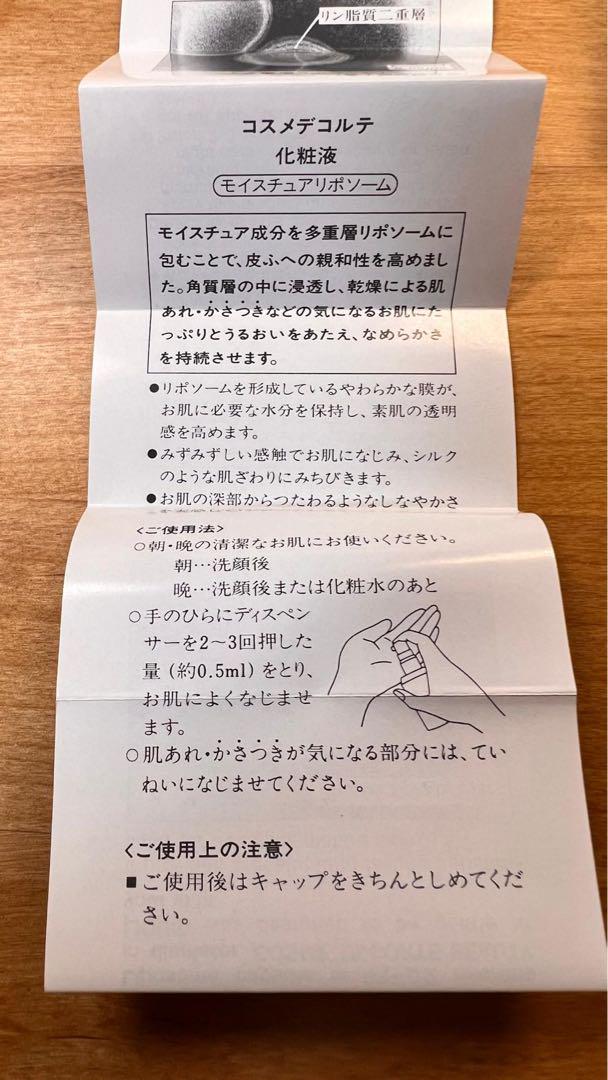 リン脂質二重層
コスメデコルテ
化粧液
モイスチュアリポソーム
モイスチュア成分を多重層リポソームに
包むことで、皮ふへの親和性を高めまし
た。角質層の中に浸透し、乾燥による肌
あれ・かさつきなどの気になるお肌にた
っぷりとうるおいをあたえ、なめらかさ
を持続させます。
●リポソームを形成しているやわらかな膜が、
お肌に必要な水分を保持し、素肌の透明
感を高めます。
●みずみずしい感触でお肌になじみ、シルク
のような肌ざわりにみちびきます。
●お肌の深部からつたわるようなしなやかさ
〈ご使用法〉
○朝・晩の清潔なお肌にお使いください。
朝…洗顔後
晩…洗顔後または化粧水のあと
○手のひらにディスペン
サーを2〜3回押した
量(約0.5ml)をとり、
お肌によくなじませ
ます。
○肌あれ・かさつきが気になる部分には、てい
ねいになじませてください。
〈ご使用上の注意〉
■ご使用後はキャップをきちんとしめてくだ
さい。